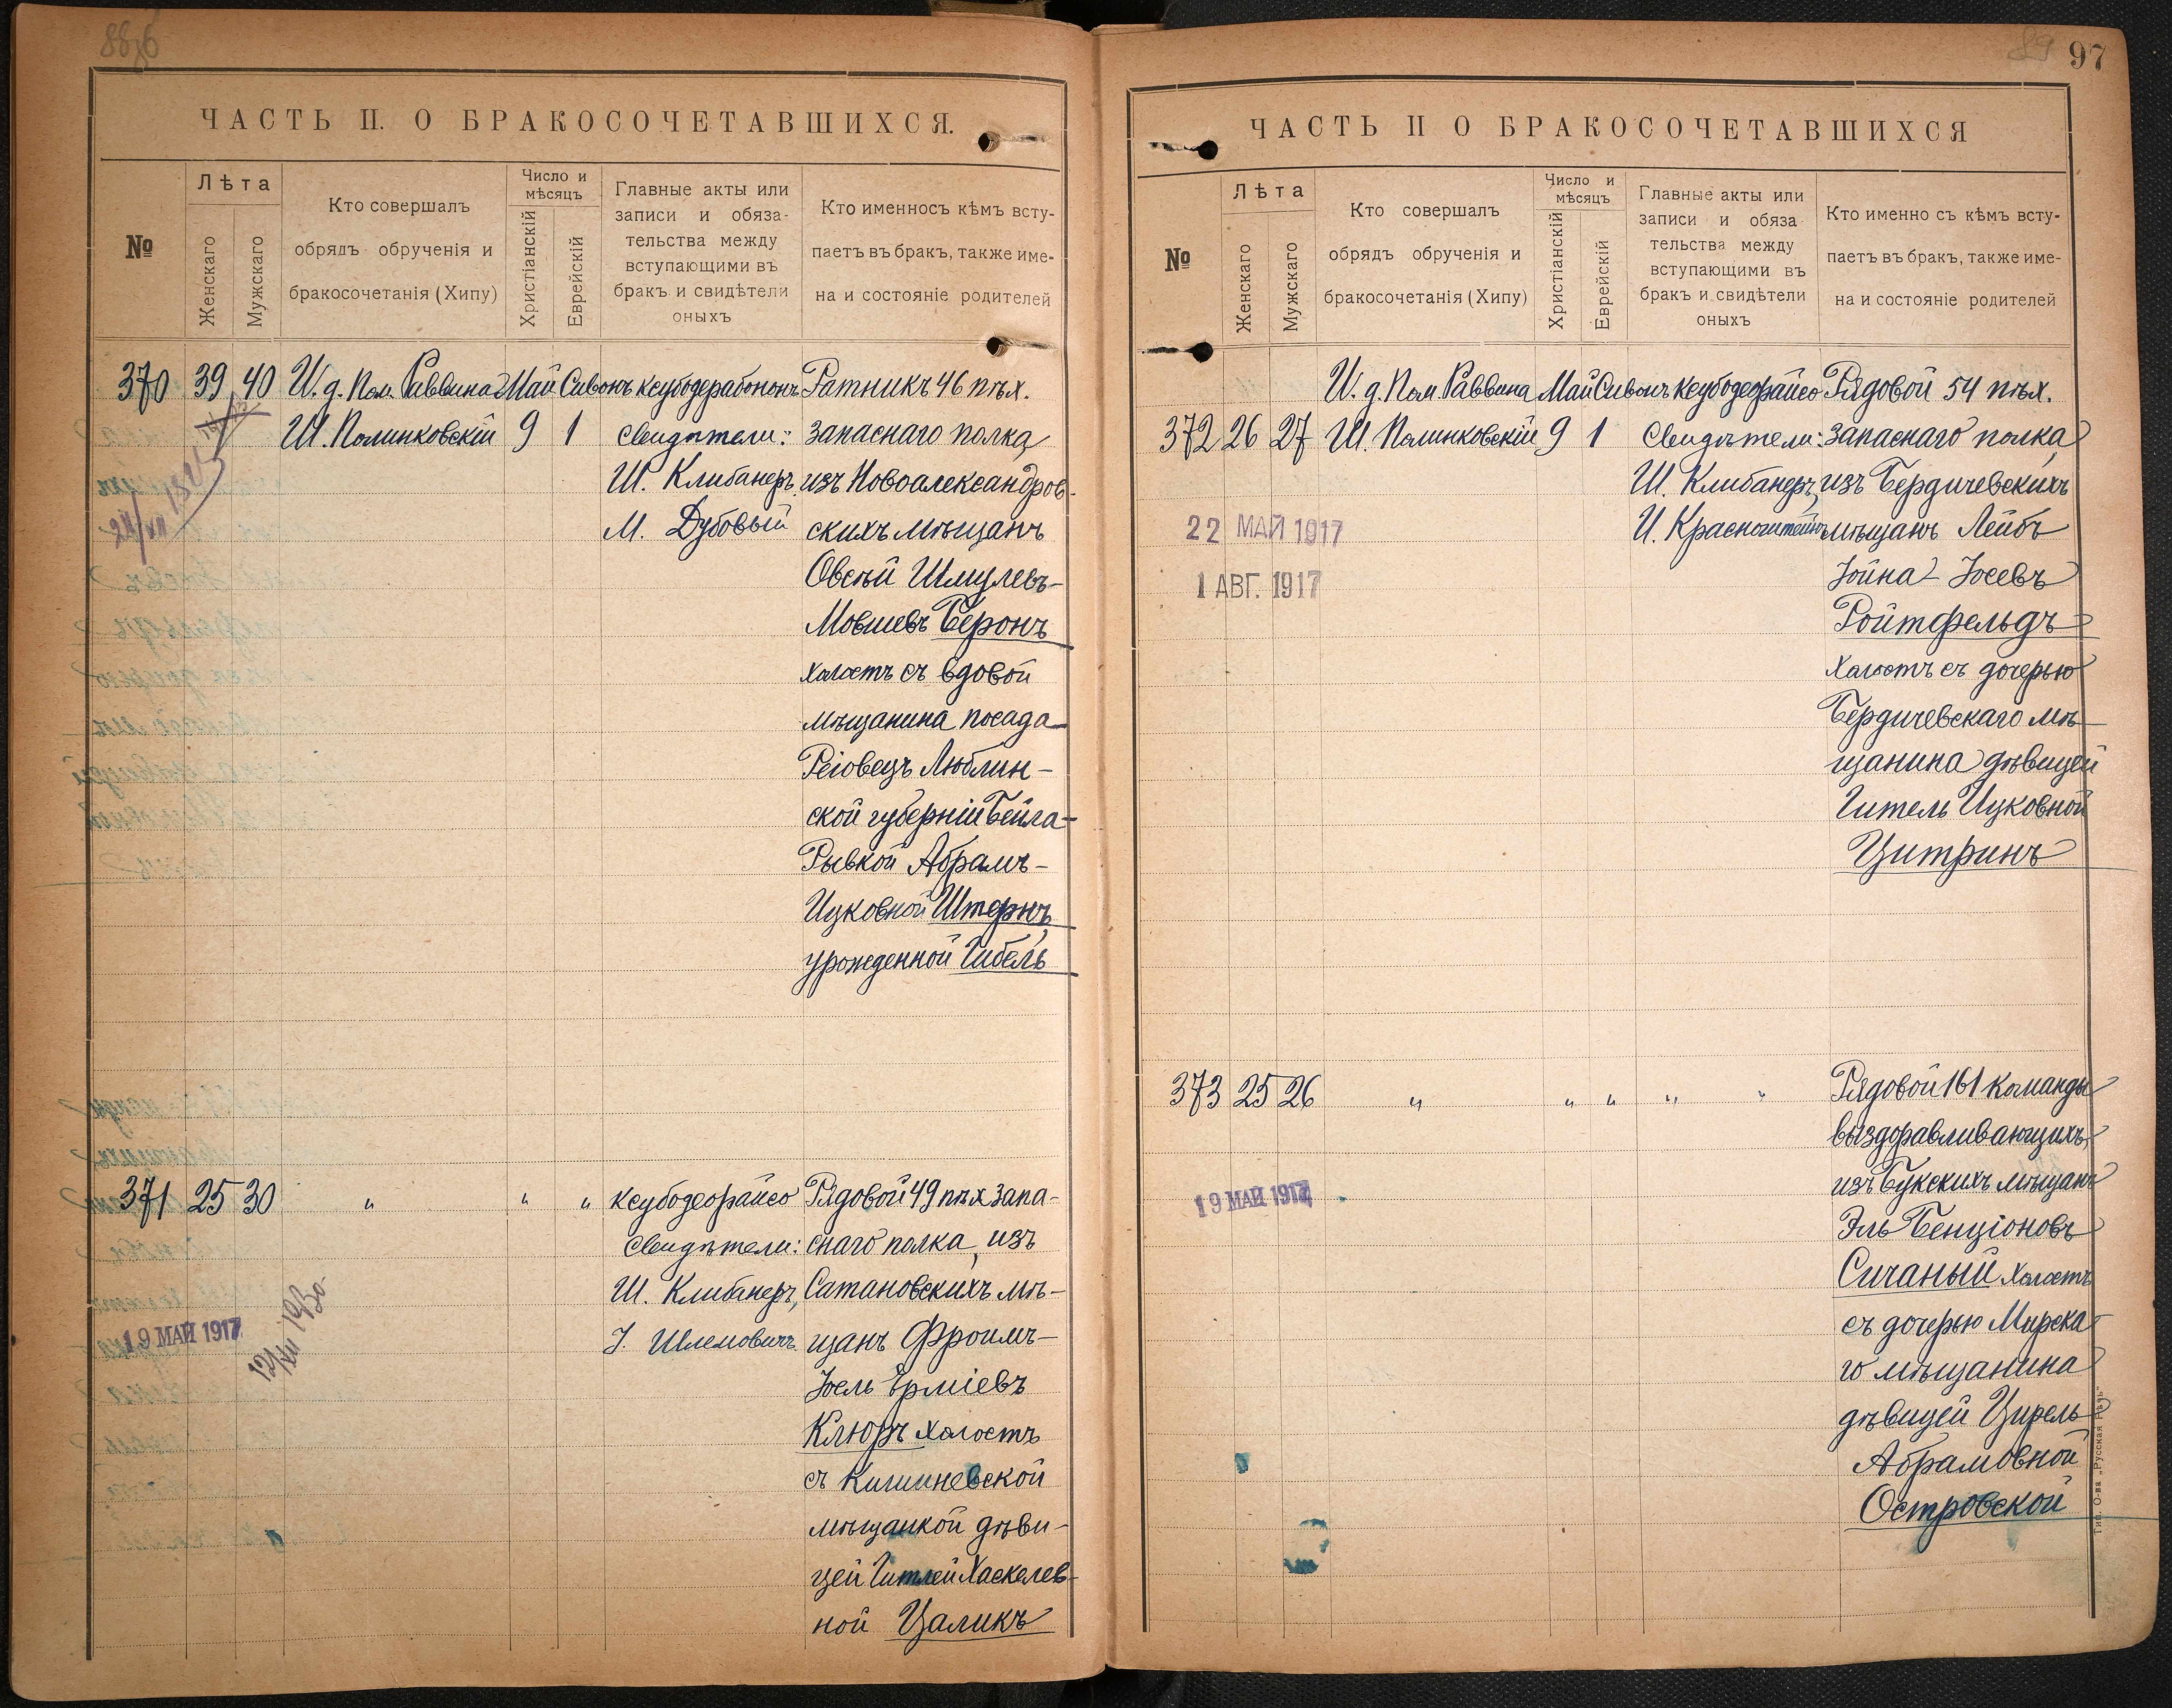 88об
ЧАСТЬ II. О БРАКОСОЧЕТАВШИХСЯ.
№
Лѣта
Женскаго
Мужскаго
Кто совершалъ
обрядъ обрученія и
бракосочетанія (Хипу)
Число и
мѣсяцъ
Христіанскій
Еврейскій
Главные акты или
записи и обяза-
тельства между
вступающими въ
бракъ и свидѣтели
оныхъ
Кто именносъ кѣмъ всту-
паетъ въ бракъ, также име-
на и состояніе родителей
370 39 40 И. д. Пом. Раввина Май Сивонъ Ксубодерабононъ Ратникъ 46 пѣх.
Ш. Полинковскій 9 1 Свидѣтели: запаснаго полка,
Ш. Клибанеръ, изъ Новоалександров-
М. Дубовый скихъ мѣщанъ
Овсѣй Шмулевъ-
Мовшевъ Беронъ
холостъ съ вдовой
мѣщанина посада
Реіовецъ Люблин-
ской губерніи Бейла-
Рывкой Абрамъ-
Ицковной Штернъ,
урожденной Гибель
371 25 30 " " " Ксубодеорайсо Рядовой 49 пѣх запа-
Свидѣтели: снаго полка, изъ
Ш. Клибанеръ, Сатановскихъ мѣ-
19 МАЙ 1917
І. Шлемовичъ щанъ Фроимъ-
Іоель Ерміевъ
Клюръ холостъ
съ Кишиневской
мѣщанкой дѣви-
цей Гитлей Хаскелев-
ной Цаликъ
89 97
ЧАСТЬ II О БРАКОСОЧЕТАВШИХСЯ
№
Лѣта
Женскаго
Мужскаго
Кто совершалъ
обрядъ обрученія и
бракосочетанія (Хипу)
Число и
мѣсяцъ
Христіанскій
Еврейскій
Главные акты или
записи и обяза
тельства между
вступающими въ
бракъ и свидѣтели
оныхъ
Кто именно съ кѣмъ всту-
паетъ въ бракъ, также име-
на и состояніе родителей
И. д. Пом. Раввина Май Сивонъ Ксубодеорайсо Рядовой 54 пѣх.
372 26 27 Ш. Полинковскій 9 1 Свидѣтели: запаснаго полка,
Ш. Клибанеръ, изъ Бердичевскихъ
22 МАЙ 1917
И. Красноштейнъ мѣщанъ Лейбъ
1 АВГ. 1917
Іойна-Іосевъ
Ройтфельдъ
холостъ съ дочерью
Бердичевскаго мѣ-
щанина дѣвицей
Гитель Ицковной
Цитринъ
373 25 26 " " " " " Рядовой 161 команды
выздоравливающихъ,
19 МАЙ 1917
изъ Букскихъ мѣщанъ
Эль Бенціоновъ
Сичаный холостъ
съ дочерью Мирска-
го мѣщанина
дѣвицей Цирель
Абрамовной
Островской
Тип. О-ва „Русская Рѣчь"